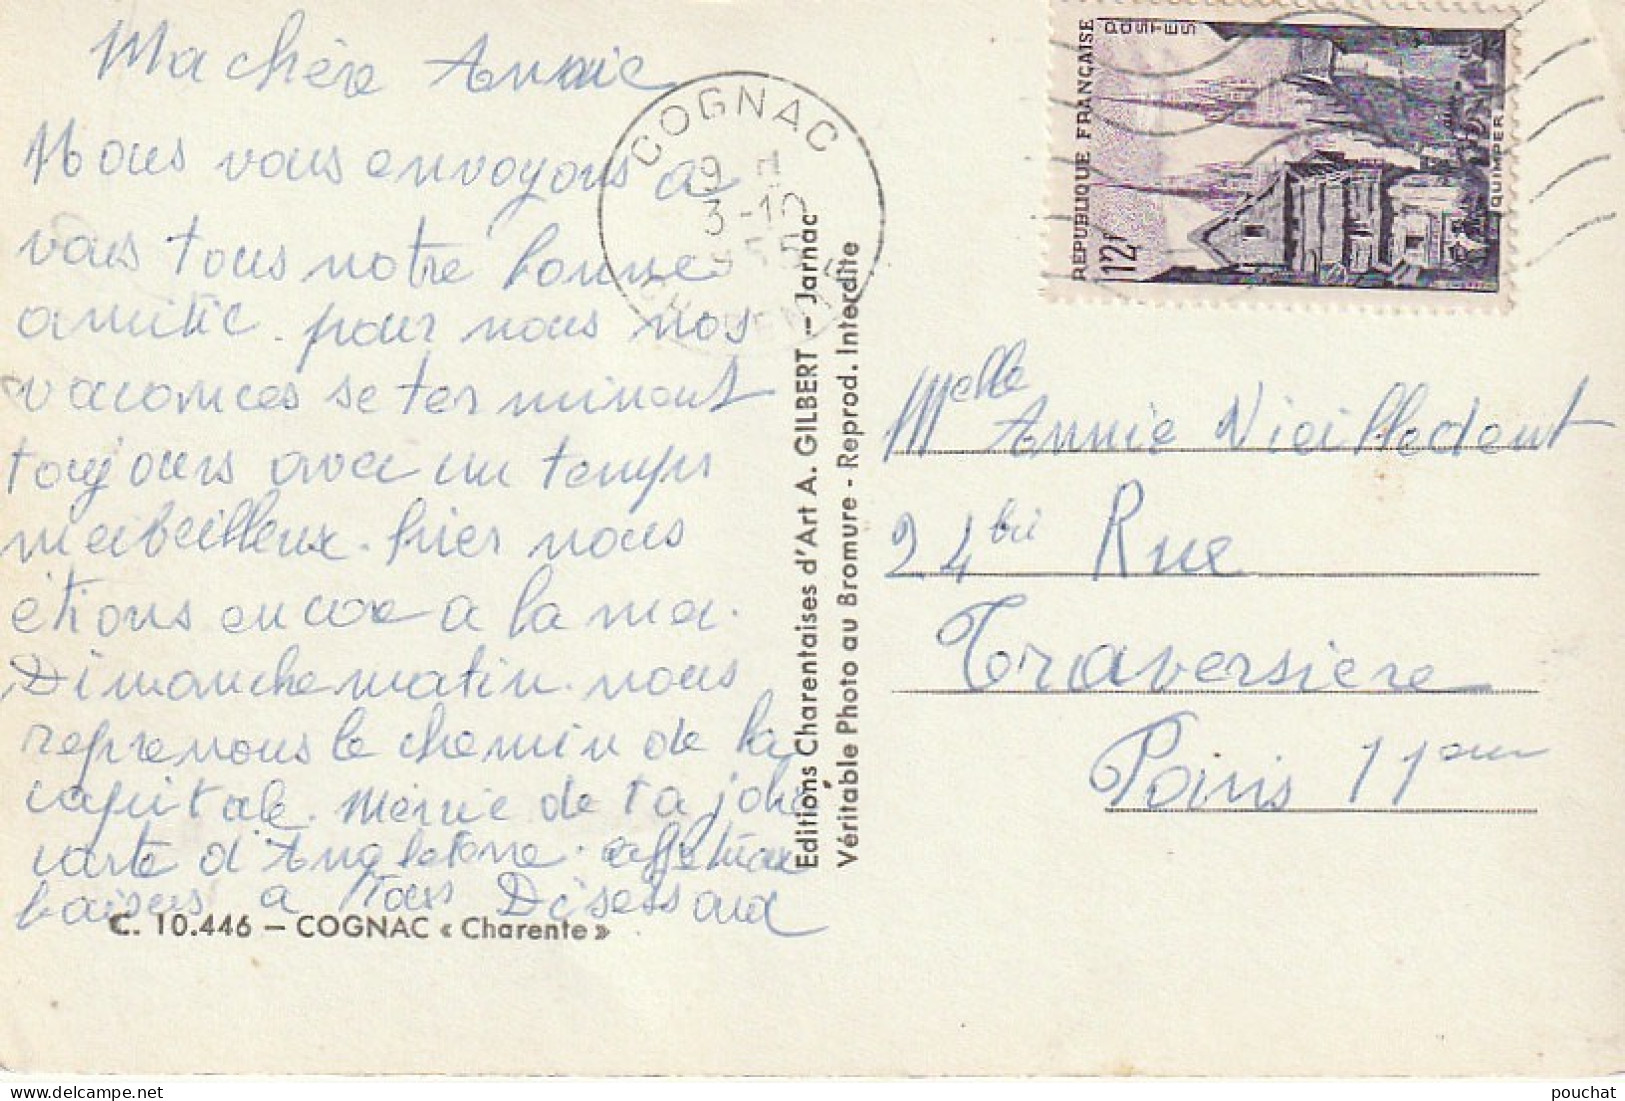 Ma chère Annie
Nous vous envoyons a
vous tous notre bonne
amitié. pour nous nos
vacances se terminent
toujours avec un temps
merveilleux. hier nous
étions encore a la mer.
Dimanche matin. nous
reprenons le chemin de la
capitale. Mercie de ta jolie
carte d'Angleterre. affectueux
baisers a Tous
C. 10.446 – COGNAC « Charente »
COGNAC
9 H
3-10
CHARENTE
Editions Charentaises d'Art A. GILBERT – Jarnac
Véritable Photo au Bromure - Reprod. Interdite
REPUBLIQUE FRANÇAISE
POSTES
12F
QUIMPER
Melle Annie Vieilledent
24 bis Rue
Traversière
Paris 11 em
pouchat